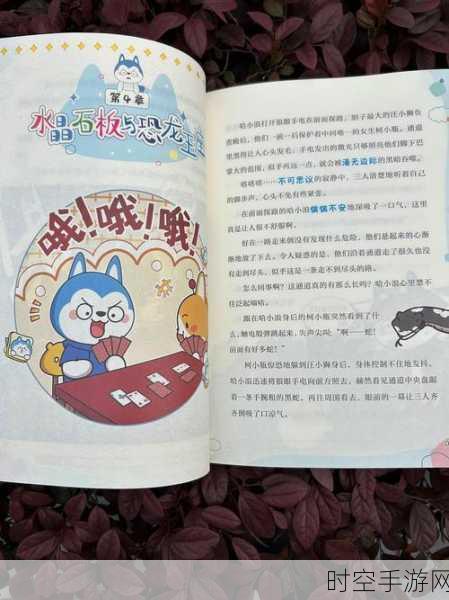 第4章
水晶石板与恐龙王
哦！哦！哦！
哈小浪打开狼眼手电在前面探路，胆子最大的汪小狮负
责断后，他们一前一后保护着中间唯一的女生柯小瓶。通道
里黑得让人心头发毛，手电发出的微光只够照亮他们脚下巴
掌大的范围，似乎再远一点，就会被漫无边际的黑暗吞噬。
嗒嗒嗒……不可思议的寂静中，三人清楚地听着自己
的脚步声，心头不免有些紧张。
在前面探路的哈小浪惴惴不安地深吸了一口气，这里
真是让人很不舒服啊。
好在一路走来倒没有发现什么危险，他们悬起来的心渐
渐地放了下去。令人疑惑的是，他们沿着通道走了很久也没
有走到尽头，似乎这是一条走不到尽头的路。
怎么回事啊？这通道真的有那么长吗？哈小浪心里禁不
住泛起嘀咕。
跟在哈小浪身后的柯小瓶突然看到了什
么，触电般弹跳起来，失声尖叫：“啊——蛇！
前面有好多蛇！”
柯小瓶惊恐地躲到汪小狮身后，身体控制不住地发抖。
哈小浪迅速将狼眼手电向前方照去，赫然看见通道中央盘踞
着一条手腕粗的黑蛇，再往周围看去，眼前的一幕让三人齐
齐倒吸了口凉气。
时空手游网